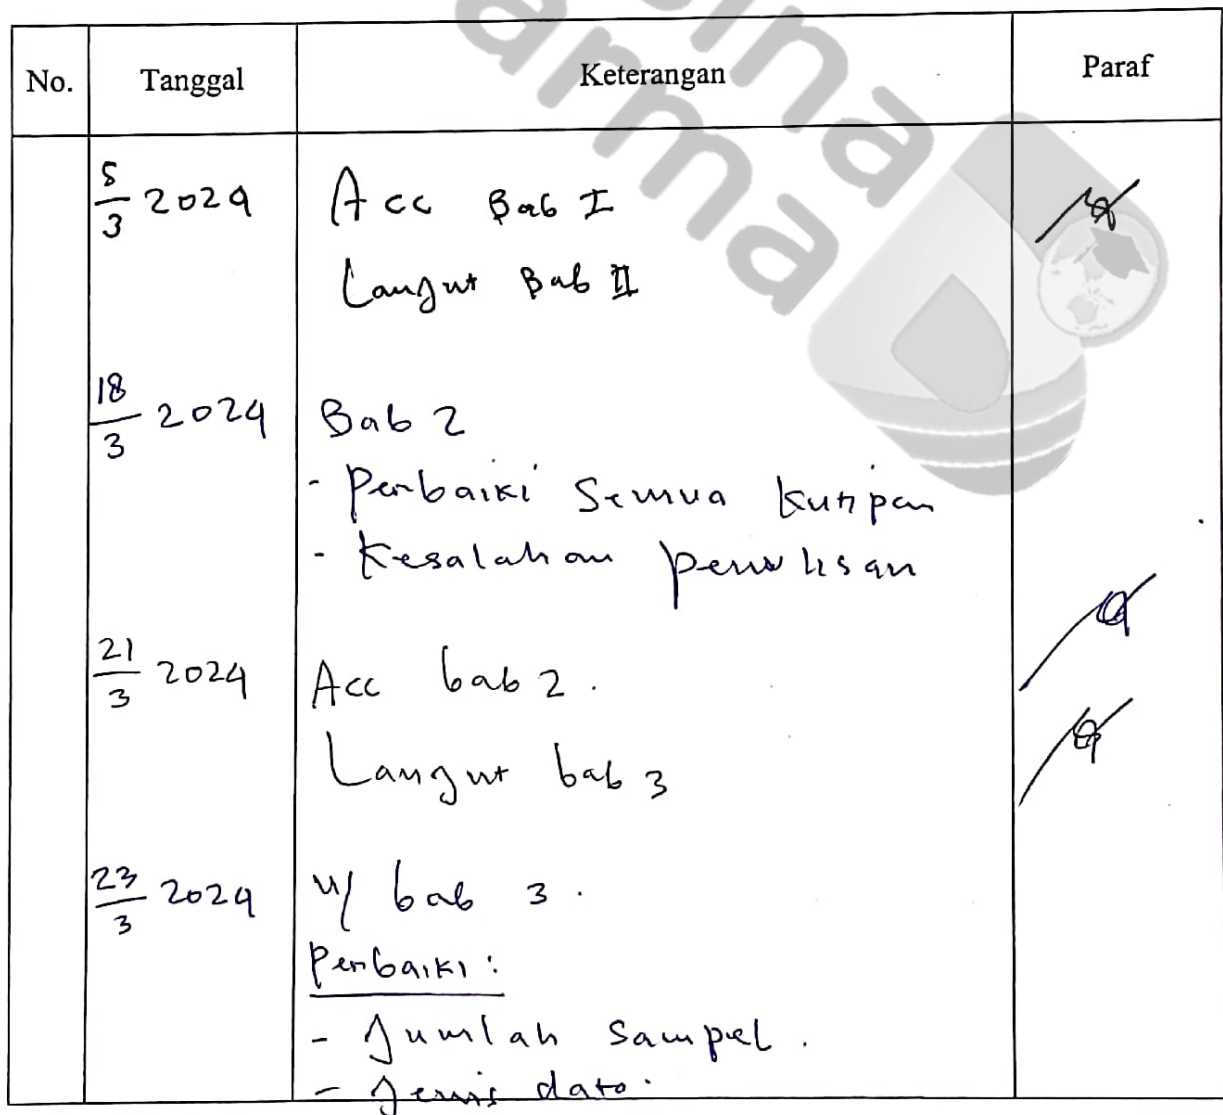 No. Tanggal Keterangan Paraf
5/3 2024 Acc Bab I
Langut Bab II
18/3 2024 Bab 2
- Perbaiki Semua Kutipan
- Kesalahan penulisan
21/3 2024 Acc bab 2.
Langut bab 3
23/3 2024 u/ bab 3.
Perbaiki:
- Jumlah Sampel.
- Jenis data.